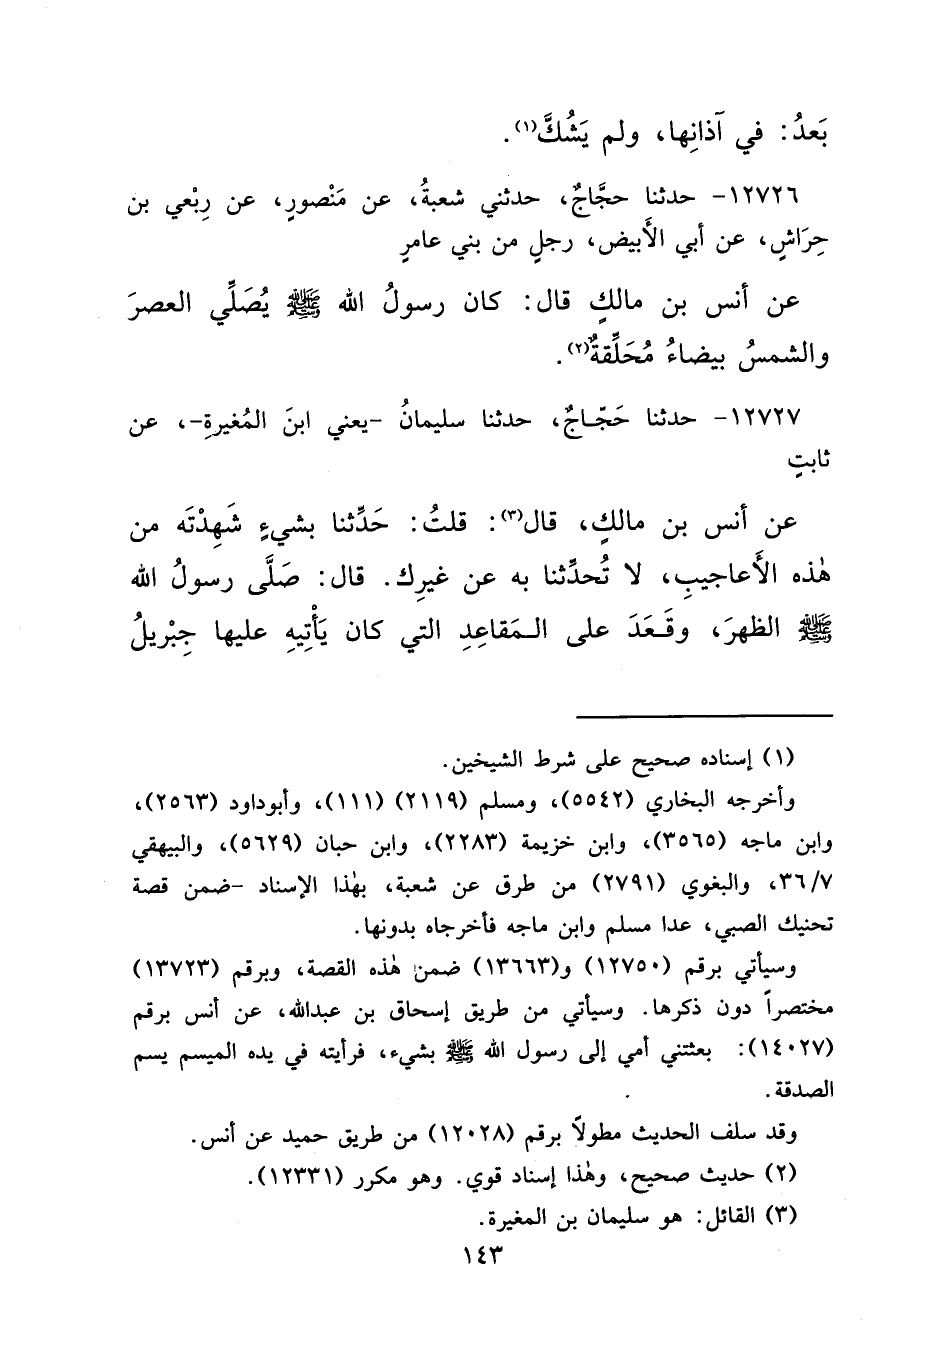 بَعدُ: في آذانِها، ولم يَشُكَّ(١).
١٢٧٢٦- حدثنا حجَّاجٌ، حدثني شعبةُ، عن مَنْصورٍ، عن رِبْعي بن
حِرَاشٍ، عن أبي الأَبيض، رجلٍ من بني عامرٍ
عن أنس بن مالكٍ قال: كان رسولُ الله ﷺ يُصَلِّي العصرَ
والشمسُ بيضاءُ مُحَلِّقةٌ(٢).
١٢٧٢٧- حدثنا حَجّاجٌ، حدثنا سليمانُ -يعني ابنَ المُغيرةِ-، عن
ثابتٍ
عن أنس بن مالكٍ، قال(٣): قلتُ: حَدِّثنا بشيءٍ شَهِدْتَه من
هٰذه الأَعاجيبِ، لا تُحدِّثنا به عن غيرِك. قال: صَلَّى رسولُ الله
ﷺ الظهرَ، وقَعَدَ على المَقاعِدِ التي كان يَأْتِيهِ عليها جِبْريلُ
(١) إسناده صحيح على شرط الشيخين.
وأخرجه البخاري (٥٥٤٢)، ومسلم (٢١١٩) (١١١)، وأبوداود (٢٥٦٣)،
وابن ماجه (٣٥٦٥)، وابن خزيمة (٢٢٨٣)، وابن حبان (٥٦٢٩)، والبيهقي
٣٦/٧، والبغوي (٢٧٩١) من طرق عن شعبة، بهٰذا الإسناد -ضمن قصة
تحنيك الصبي، عدا مسلم وابن ماجه فأخرجاه بدونها.
وسيأتي برقم (١٢٧٥٠) و(١٣٦٦٣) ضمن هٰذه القصة، وبرقم (١٣٧٢٣)
مختصراً دون ذكرها. وسيأتي من طريق إسحاق بن عبدالله، عن أنس برقم
(١٤٠٢٧): بعثتني أمي إلى رسول الله ﷺ بشيء، فرأيته في يده الميسم يسم
الصدقة.
وقد سلف الحديث مطولاً برقم (١٢٠٢٨) من طريق حميد عن أنس.
(٢) حديث صحيح، وهٰذا إسناد قوي. وهو مكرر (١٢٣٣١).
(٣) القائل: هو سليمان بن المغيرة.
١٤٣